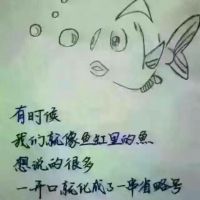 有时候
我们就像鱼缸里的魚
想说的很多
一开口就化成了一串省略号